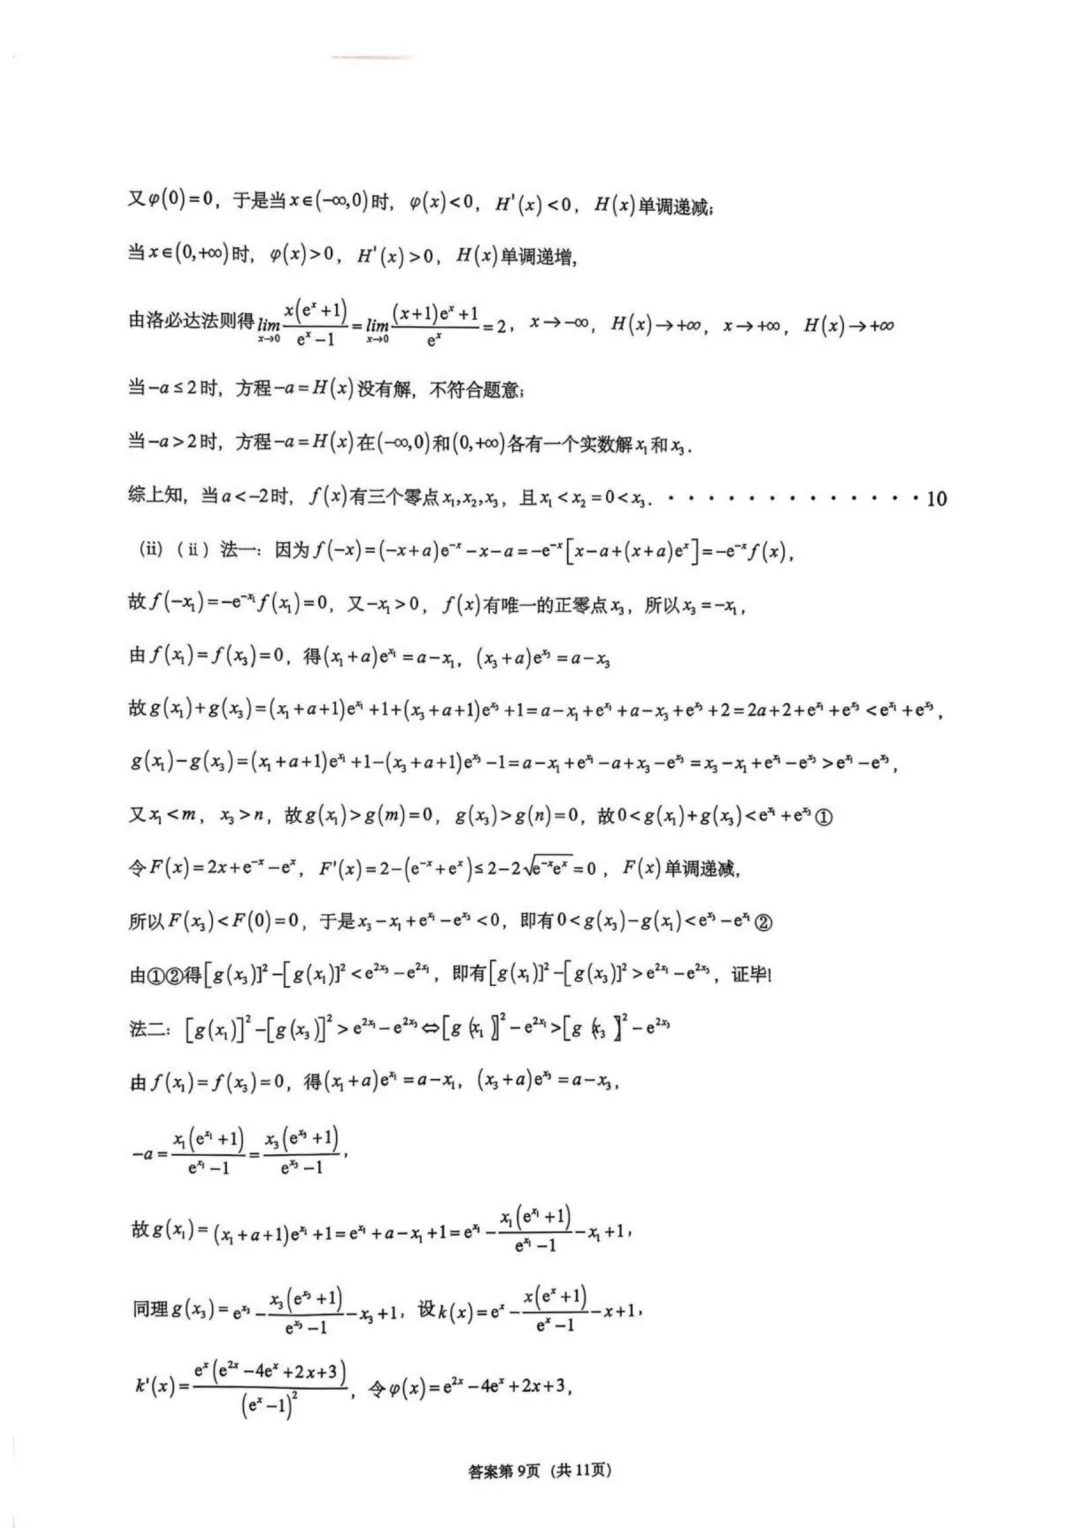 又φ(0)=0，于是当x∈(-∞,0)时，φ(x)<0，H'(x)<0，H(x)单调递减;
当x∈(0,+∞)时，φ(x)>0，H'(x)>0，H(x)单调递增,
由洛必达法则得lim_{x→0} x(e^x+1)/(e^x-1)=lim_{x→0} ((x+1)e^x+1)/e^x=2，x→-∞，H(x)→+∞，x→+∞，H(x)→+∞
当-a≤2时，方程-a=H(x)没有解，不符合题意;
当-a>2时，方程-a=H(x)在(-∞,0)和(0,+∞)各有一个实数解x₁和x₃.
综上知，当a<-2时，f(x)有三个零点x₁,x₂,x₃，且x₁<x₂=0<x₃.·············10
(ii)（ii）法一：因为f(-x)=(-x+a)e^{-x}-x-a=-e^{-x}[x-a+(x+a)e^x]=-e^{-x}f(x),
故f(-x₁)=-e^{-x₁}f(x₁)=0，又-x₁>0，f(x)有唯一的正零点x₃，所以x₃=-x₁,
由f(x₁)=f(x₃)=0，得(x₁+a)e^{x₁}=a-x₁，(x₃+a)e^{x₃}=a-x₃
故g(x₁)+g(x₃)=(x₁+a+1)e^{x₁}+1+(x₃+a+1)e^{x₃}+1=a-x₁+e^{x₁}+a-x₃+e^{x₃}+2=2a+2+e^{x₁}+e^{x₃}<e^{x₁}+e^{x₃},
g(x₁)-g(x₃)=(x₁+a+1)e^{x₁}+1-(x₃+a+1)e^{x₃}-1=a-x₁+e^{x₁}-a+x₃-e^{x₃}=x₃-x₁+e^{x₁}-e^{x₃}>e^{x₁}-e^{x₃},
又x₁<m，x₃>n，故g(x₁)>g(m)=0，g(x₃)>g(n)=0，故0<g(x₁)+g(x₃)<e^{x₁}+e^{x₃}①
令F(x)=2x+e^{-x}-e^x，F'(x)=2-(e^{-x}+e^x)≤2-2√(e^{-x}e^x)=0，F(x)单调递减,
所以F(x₃)<F(0)=0，于是x₃-x₁+e^{x₁}-e^{x₃}<0，即有0<g(x₃)-g(x₁)<e^{x₃}-e^{x₁}②
由①②得[g(x₃)]²-[g(x₁)]²<e^{2x₃}-e^{2x₁}，即有[g(x₁)]²-[g(x₃)]²>e^{2x₁}-e^{2x₃}，证毕!
法二：[g(x₁)]²-[g(x₃)]²>e^{2x₁}-e^{2x₃}⇔[g(x₁)]²-e^{2x₁}>[g(x₃)]²-e^{2x₃}
由f(x₁)=f(x₃)=0，得(x₁+a)e^{x₁}=a-x₁，(x₃+a)e^{x₃}=a-x₃,
-a=x₁(e^{x₁}+1)/(e^{x₁}-1)=x₃(e^{x₃}+1)/(e^{x₃}-1),
故g(x₁)=(x₁+a+1)e^{x₁}+1=e^{x₁}+a-x₁+1=e^{x₁}-x₁(e^{x₁}+1)/(e^{x₁}-1)-x₁+1,
同理g(x₃)=e^{x₃}-x₃(e^{x₃}+1)/(e^{x₃}-1)-x₃+1，设k(x)=e^x-x(e^x+1)/(e^x-1)-x+1,
k'(x)=e^x(e^{2x}-4e^x+2x+3)/(e^x-1)²，令φ(x)=e^{2x}-4e^x+2x+3,
答案第9页（共11页）